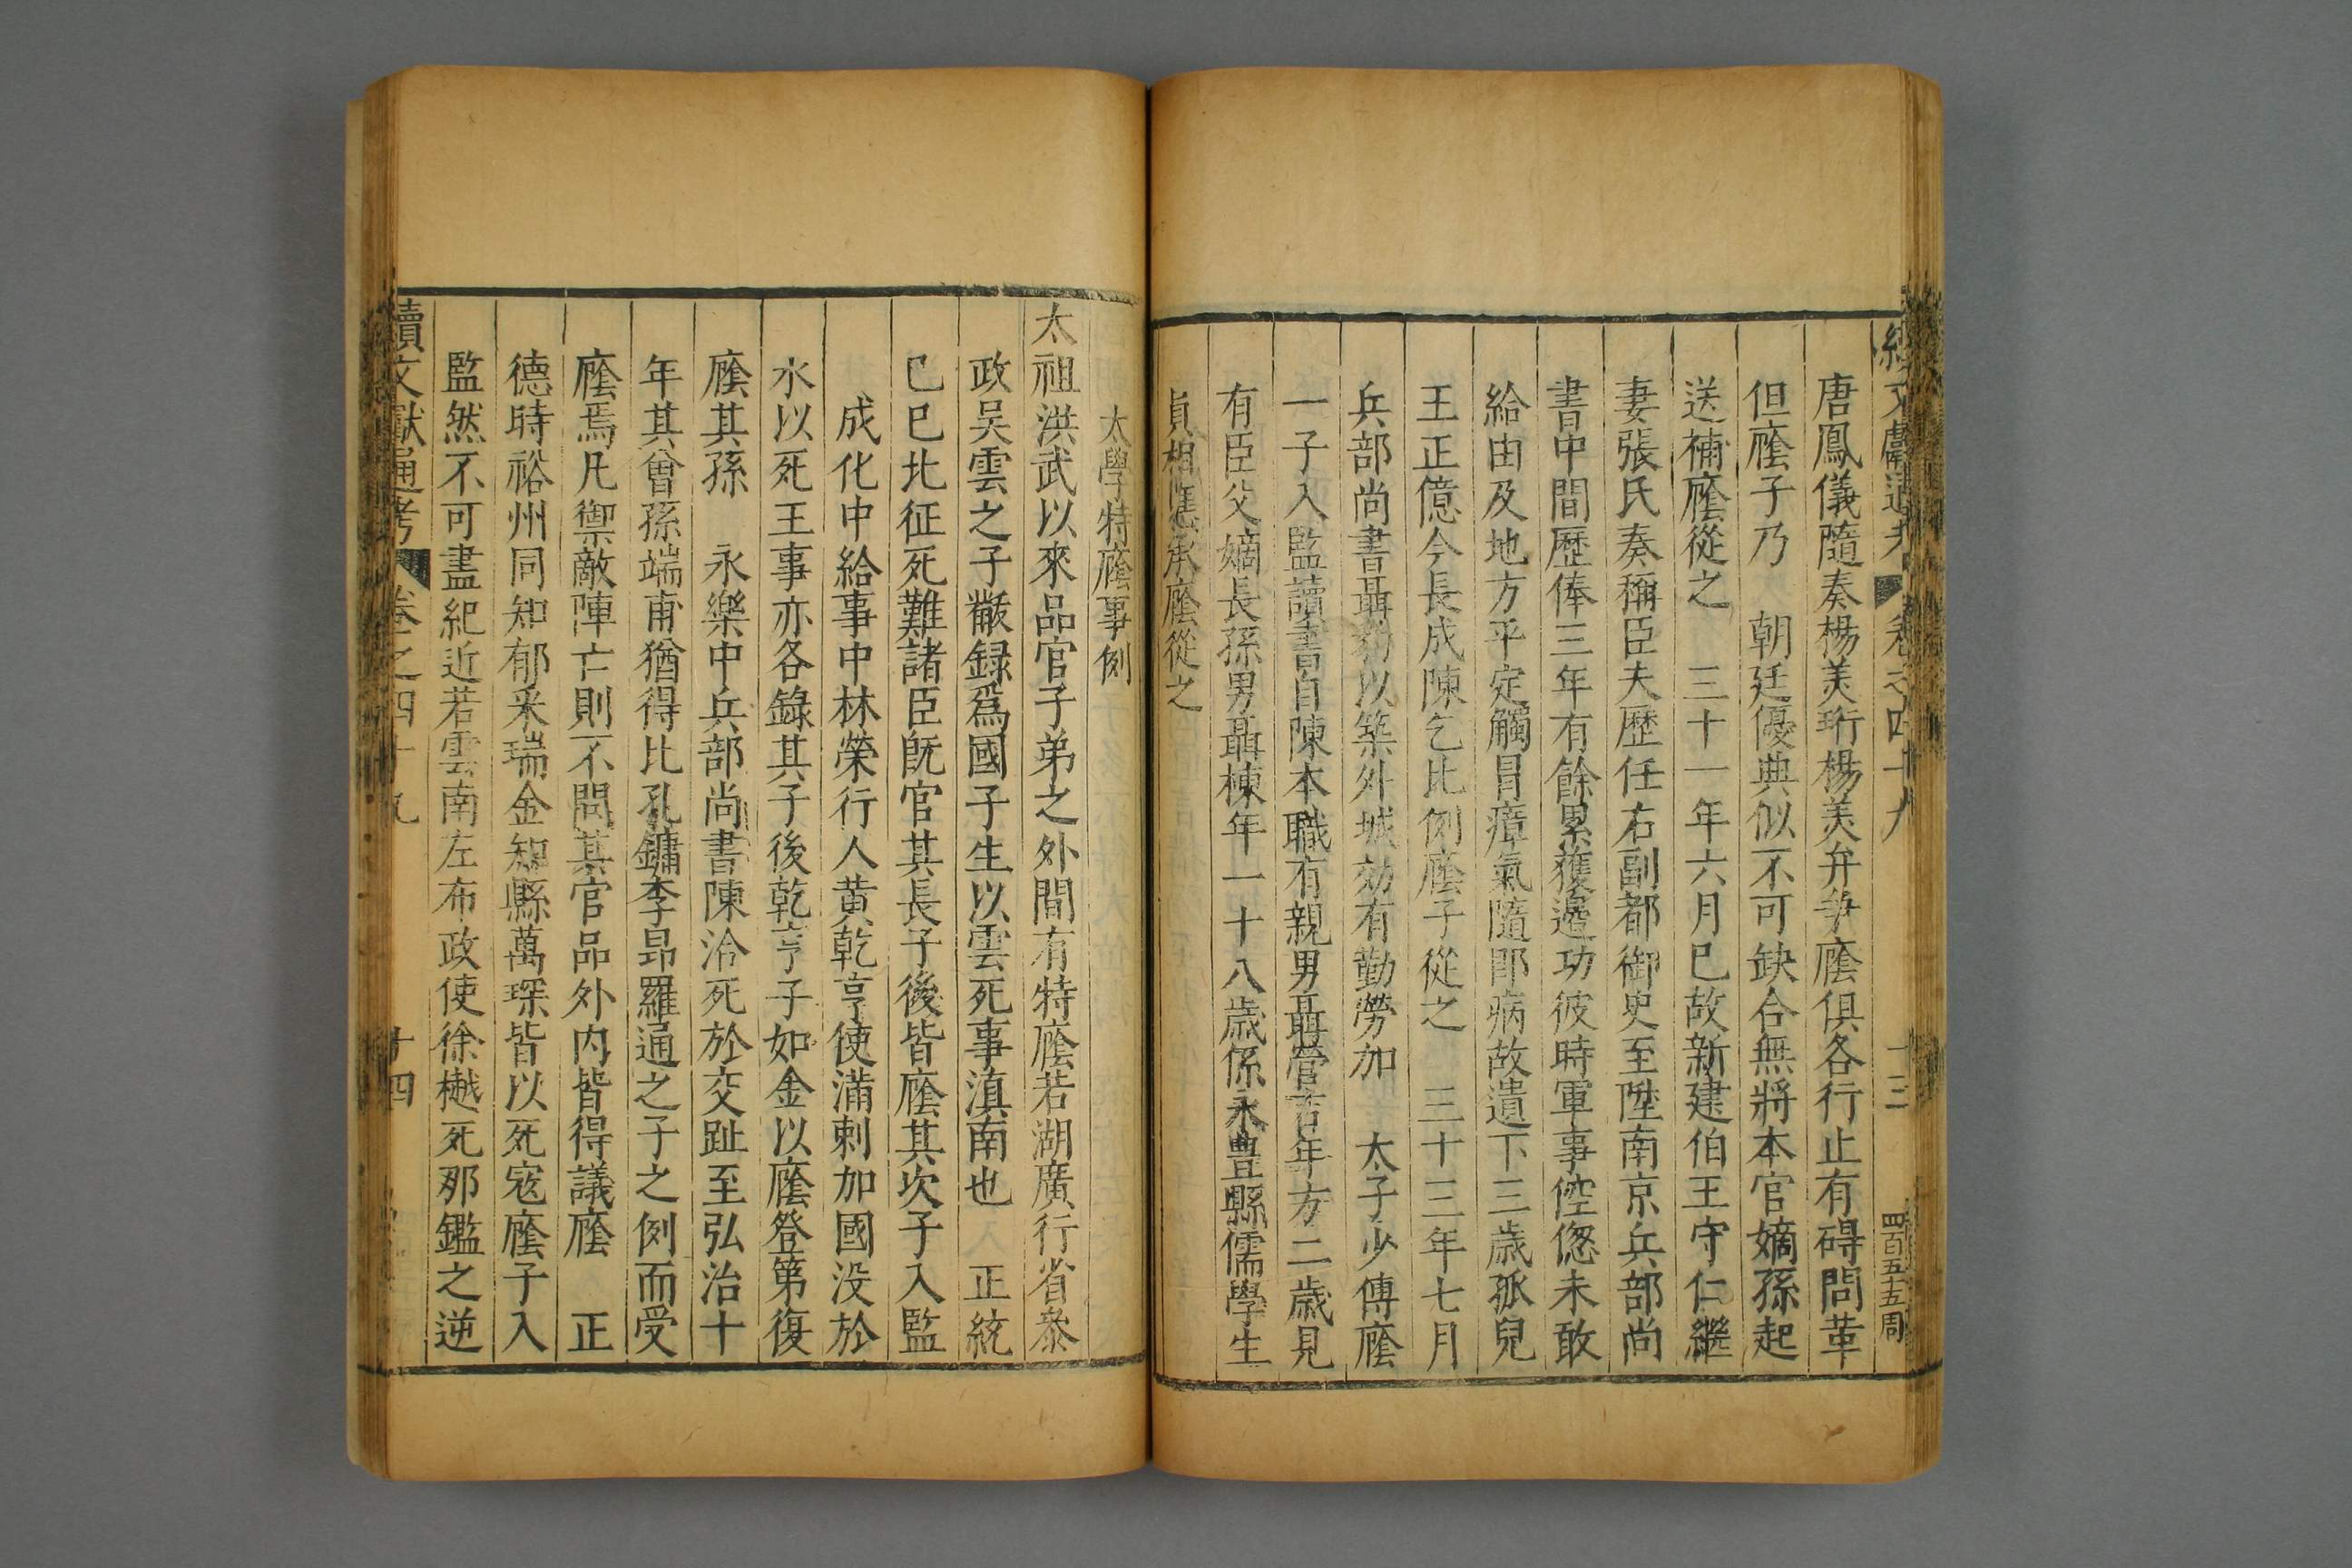 續文獻通考 卷之四十九 十三 四百五十五周
唐鳳儀隨奏楊美珩楊美弁爭廕俱各行止有碍問革
但廕子乃 朝廷優典似不可缺合無將本官嫡孫起
送補廕從之 三十一年六月已故新建伯王守仁繼
妻張氏奏稱臣夫歷任右副都御史至陞南京兵部尚
書中間歷俸三年有餘累獲邊功彼時軍事倥傯未敢
給由及地方平定觸冒瘴氣隨即病故遺下三歲孤兒
王正億今長成陳乞比例廕子從之 三十三年七月
兵部尚書聶豹以築外城効有勤勞加 太子少傅廕
一子入監讀書自陳本職有親男聶營吉年方二歲見
有臣父嫡長孫男聶棟年一十八歲係永豊縣儒學生
員相應承廕從之
太學特廕事例
太祖洪武以來品官子弟之外間有特廕若湖廣行省叅
政吴雲之子黻録爲國子生以雲死事滇南也 正統
己巳北征死難諸臣旣官其長子後皆廕其次子入監
成化中給事中林榮行人黄乾亨使滿剌加國没於
水以死王事亦各錄其子後乾亨子如金以廕登第復
廕其孫 永樂中兵部尚書陳洽死於交趾至弘治十
年其曾孫端甫猶得比孔鏞李昂羅通之子之例而受
廕焉凡禦敵陣亡則不問其官品外内皆得議廕 正
德時裕州同知郁采瑞金知縣萬琛皆以死寇廕子入
監然不可盡紀近若雲南左布政使徐樾死那鑑之逆
續文獻通考 卷之四十九 十四